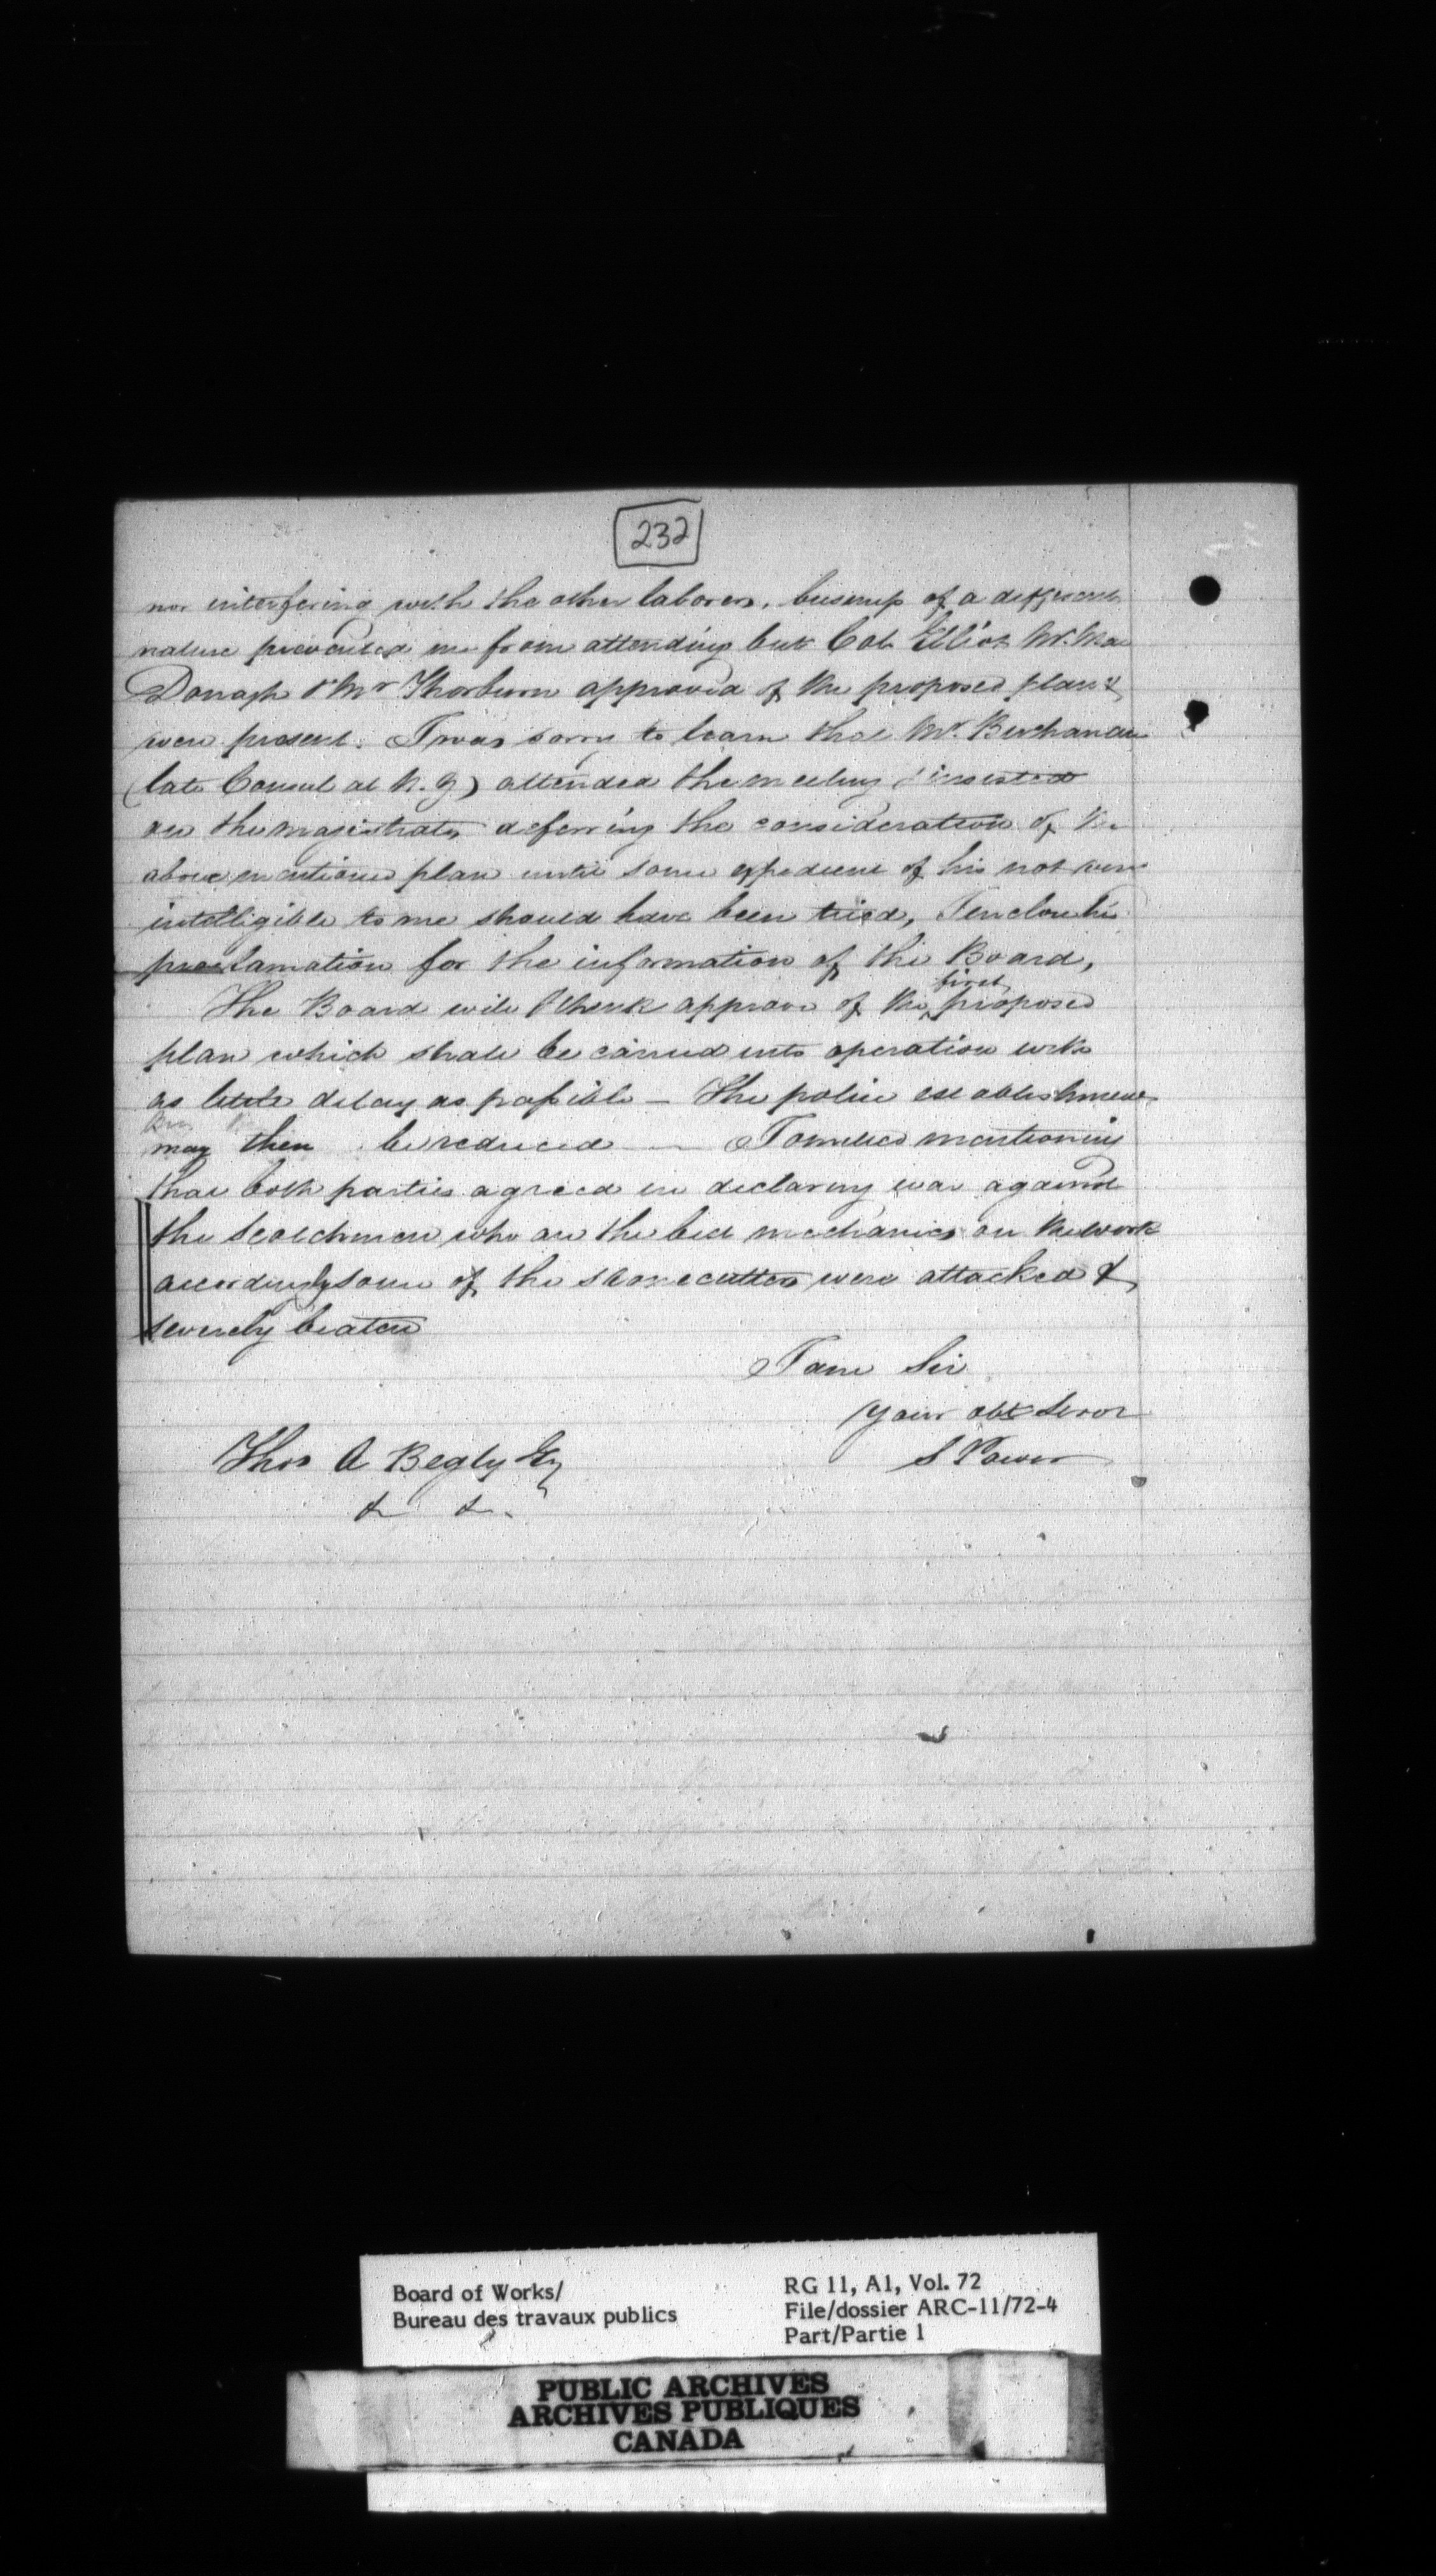 232
nor interfering with the other laborers, business of a different
nature prevented me from attending but Col. Elliot W. Mac
Donagh & Mr Thorburn approved of the proposed plan &
were present. I was sorry to learn that Mr. Buchanan
(late Consul at N. Y) attended the meeting & insisted
on the magistrates deferring the consideration of the
above mentioned plan until some expedient of his not very
intelligible to me should have been tried, I enclose his
proclamation for the information of the Board,
The Board will I think approve of the first proposed
plan which shall be carried into operation with
as little delay as possible — The police establishment
may then be reduced — I omitted mentioning
that both parties agreed in declaring war against
the Scotchmen who are the best mechanics on the work
accordingly some of the stonecutters were attacked &
severely beaten
I am Sir
your obt Servt
S Power
Thos A Begly Esq
& &.
Board of Works/
Bureau des travaux publics
RG 11, A1, Vol. 72
File/dossier ARC-11/72-4
Part/Partie 1
PUBLIC ARCHIVES
ARCHIVES PUBLIQUES
CANADA